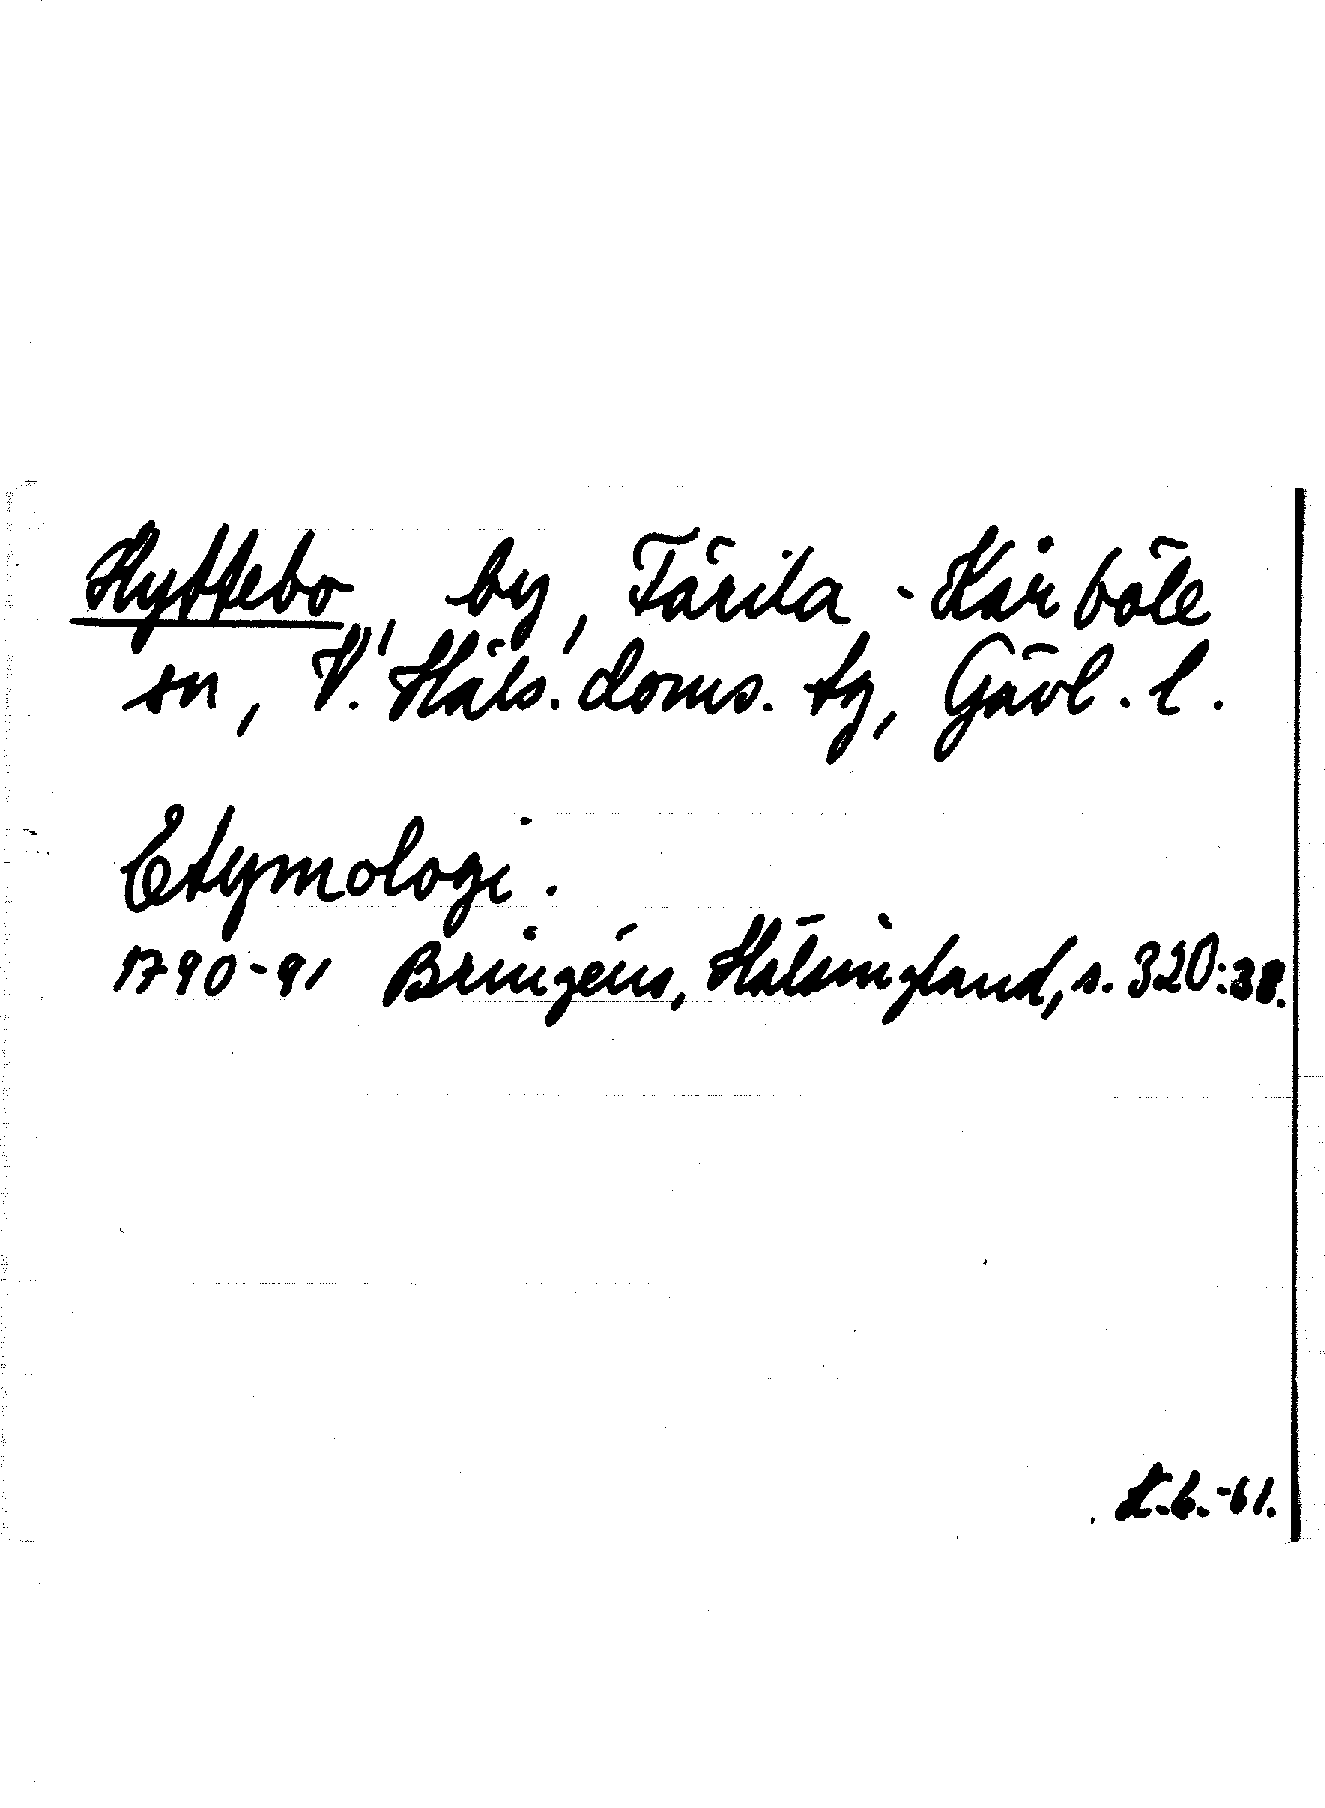 Hyttebo, by, Färila-Kårböle
sn, V. Häls. doms. tg, Gävl. l.
Etymologi.
1790-91 Bringéus, Hälsingland, s. 320:38.
-61.